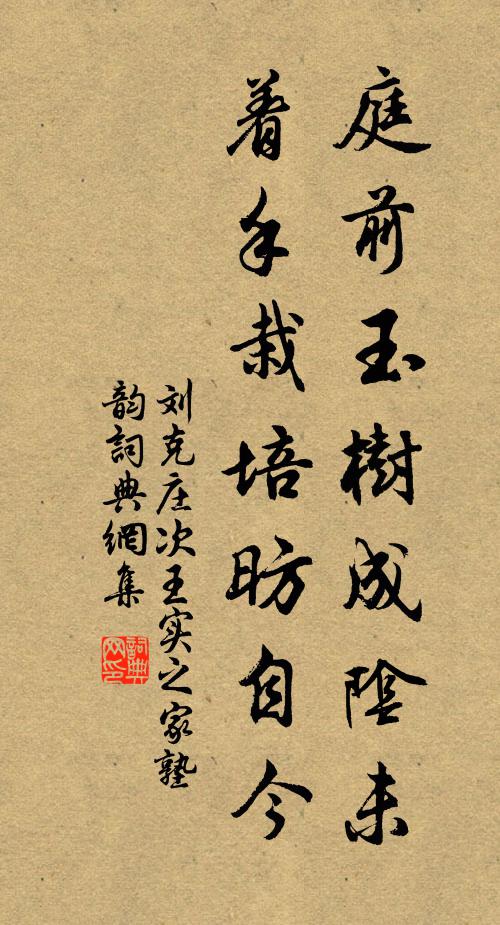 庭前玉樹成陰未
着手栽培昉自今
刘克庄次王实之家塾
韵詞典網集
詞典
网印